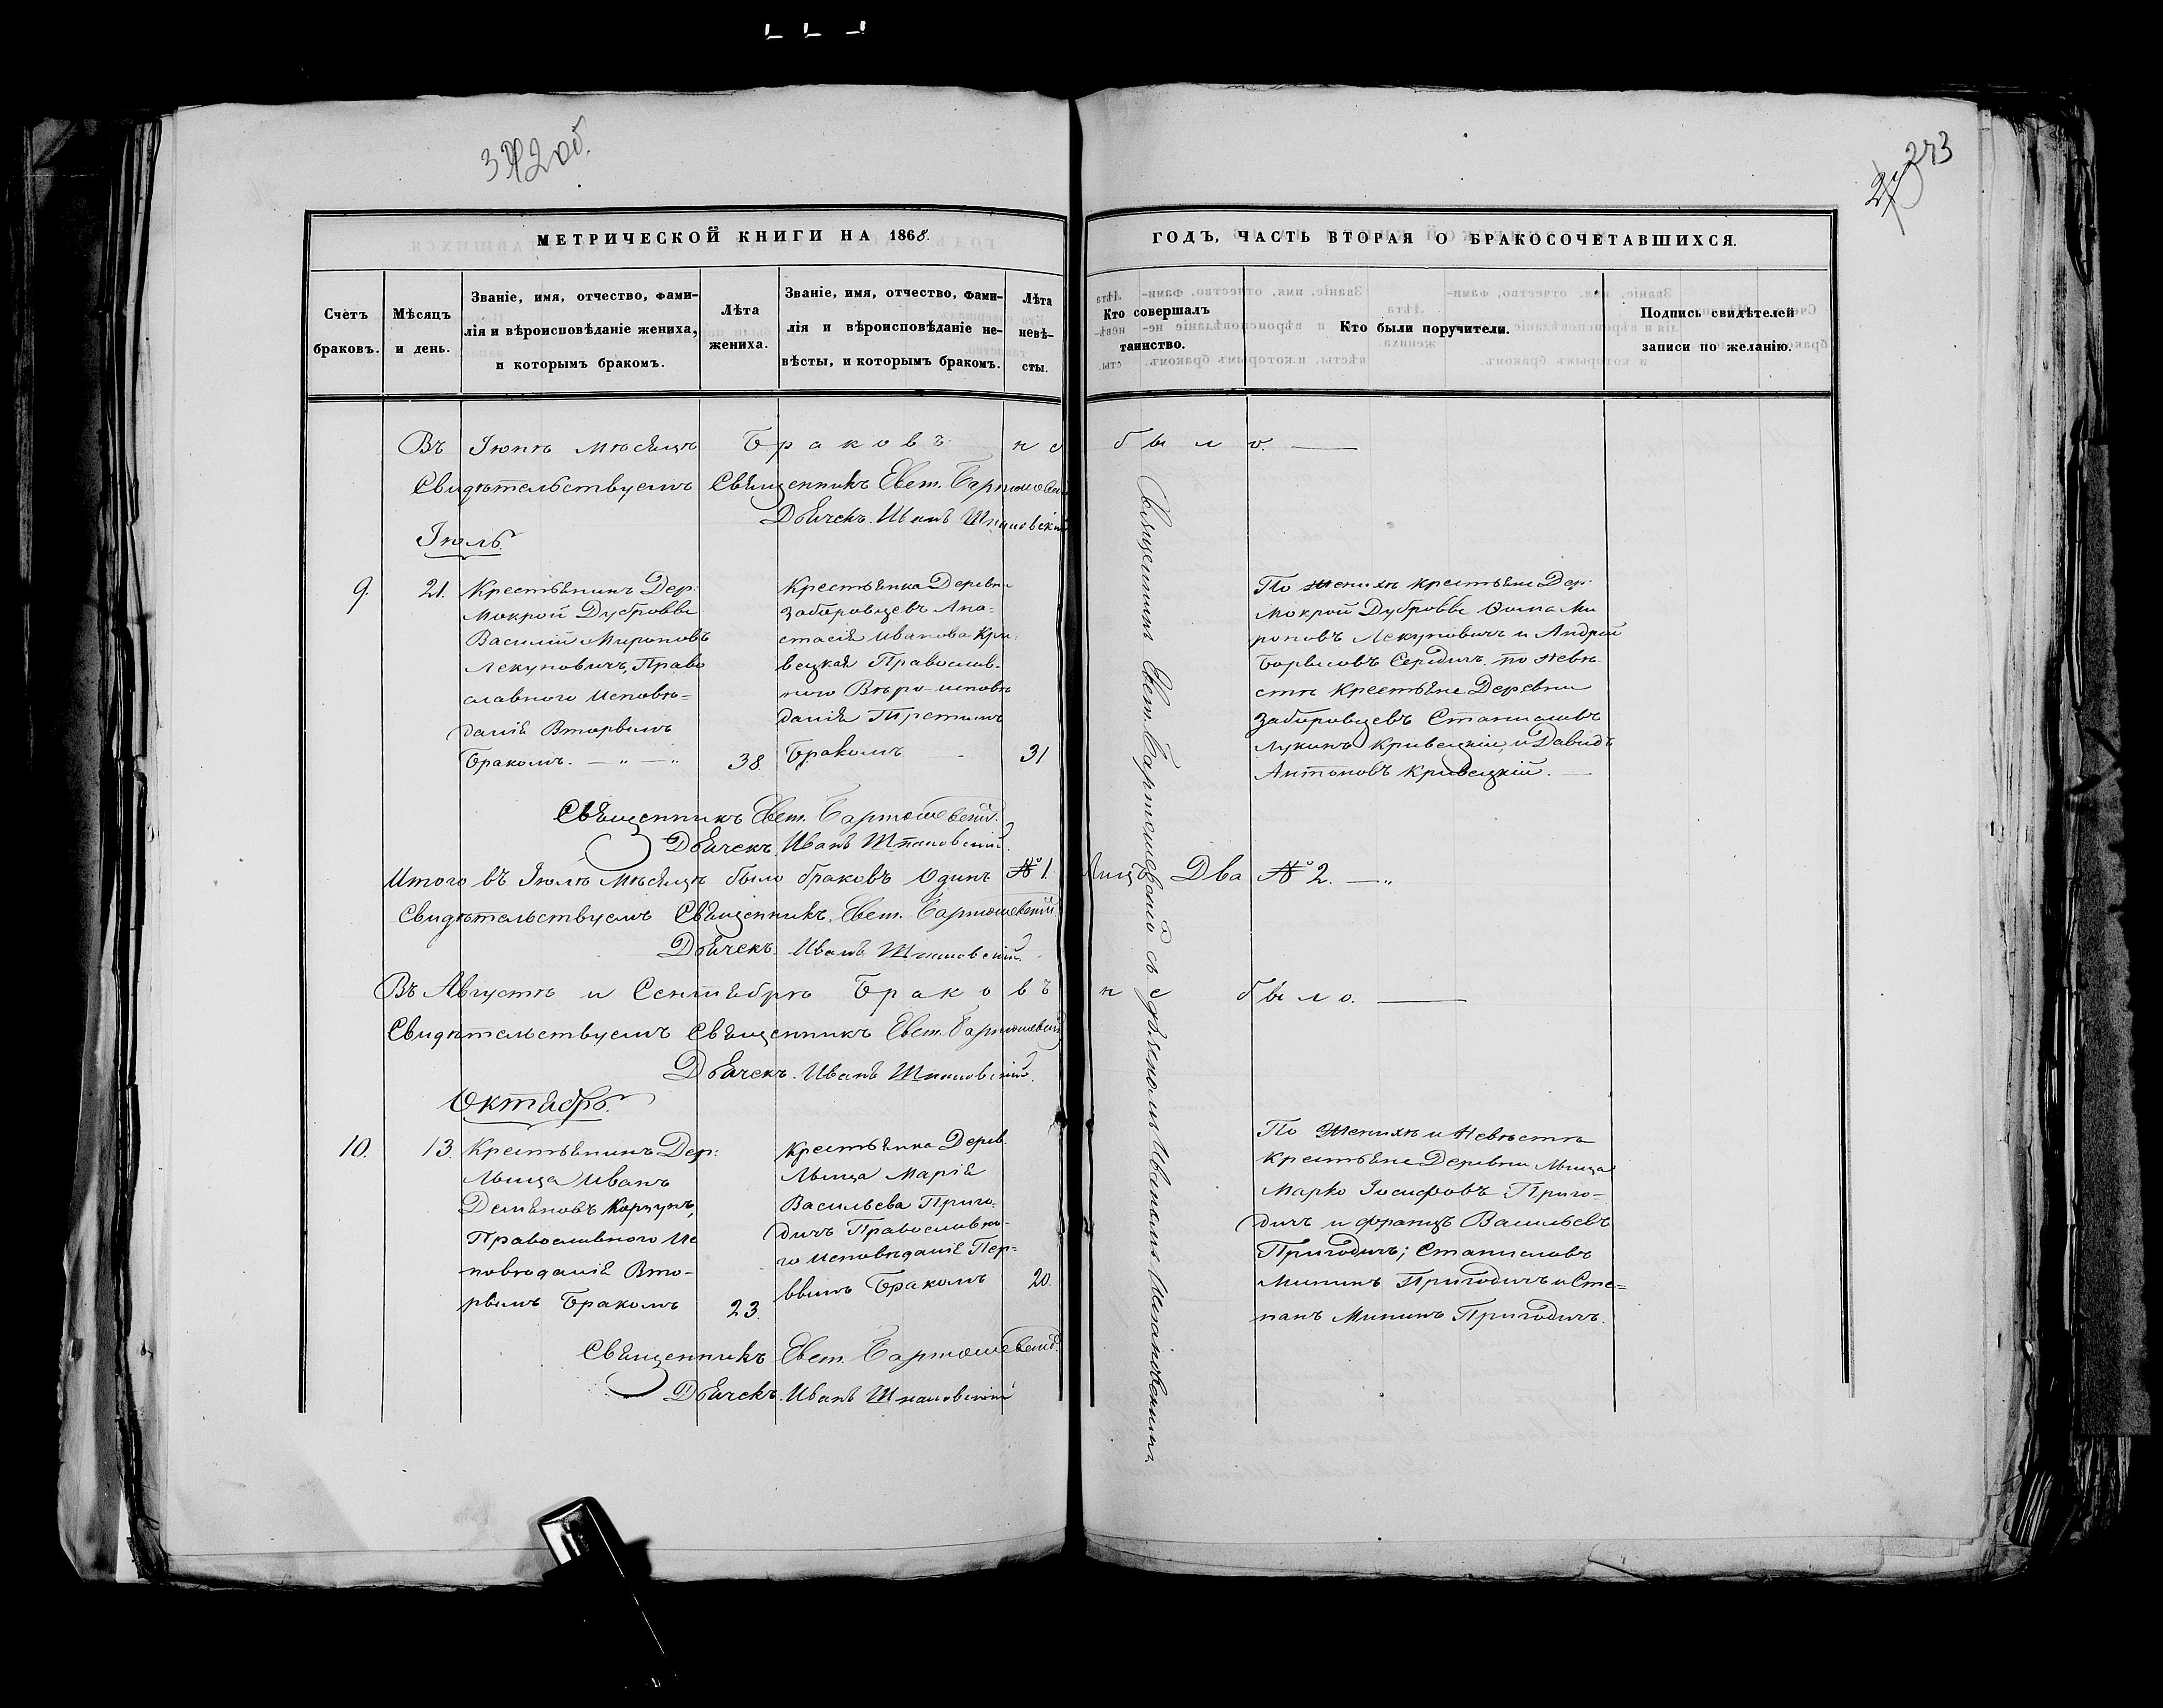 372 об.
273
МЕТРИЧЕСКОЙ КНИГИ НА 1868
ГОДЪ, ЧАСТЬ ВТОРАЯ О БРАКОСОЧЕТАВШИХСЯ.
Счетъ браковъ.
Мѣсяцъ и день.
Званіе, имя, отчество, фами-
лія и вѣроисповѣданіе жениха,
и которымъ бракомъ.
Лѣта жениха.
Званіе, имя, отчество, фами-
лія и вѣроисповѣданіе не-
вѣсты, и которымъ бракомъ.
Лѣта невѣ-
сты.
Кто совершалъ
таинство.
Кто были поручители.
Подпись свидѣтелей
записи по желанію.
Въ Іюнѣ Мѣсяцѣ Браковъ не было.
Свидѣтельствуемъ Священникъ Евст. Бартошевскій
Дьячекъ. Иванъ Шпановскій
Іюль.
9.
21.
Крестьянинъ Дер:
Мокрой Дубровы
Василій Мироновъ
Лекуновичъ, Право
славного Исповѣ-
данія Вторымъ
Бракомъ.
38.
Крестьянка Деревни
Заборовцевъ Ана-
стасія Иванова Кри-
вецкая Православ-
ного Вѣро-исповѣ
данія Третимъ
Бракомъ
31
По женихѣ крестьяне Дер:
Мокрой Дубровы Фома Ми
роновъ Лекуновичъ и Андрей
Борисовъ Середичъ. по невѣ-
стѣ Крестьяне Деревни
Заборовцевъ Станиславъ
Лукинъ Кривецкій, и Давидъ
Антоновъ Кривецкій.
Священникъ Евст. Бартошевскій.
Дьячекъ. Иванъ Шпановскій.
Итого въ Іюлѣ Мѣсяцѣ было браковъ Одинъ № 1. Лицъ Два № 2.
Свидѣтельствуемъ Священникъ. Евст. Бартошевскій
Дьячекъ. Иванъ Шпановскій.
Въ Августѣ и Сентябрѣ Браковъ не было.
Свидѣтельствуемъ Священникъ Евст. Бартошевскій
Дьячекъ. Иванъ Шпановскій.
Октябрь.
10.
13.
Крестьянинъ Дер:
Лыща Иванъ
Демяновъ Корзунъ,
Православного Ис
повѣданія Вто-
рымъ Бракомъ
23.
Крестьянка Дерев.
Лыща Марія
Васильева Приго-
дичъ Православно-
го Исповѣданія Пер-
ввымъ Бракомъ
20.
По Женихѣ и Невѣстѣ
Крестьяне Деревни Лыща
Марко Іосифовъ Приго-
дичъ и Францъ Васильевъ
Пригодичъ; Станиславъ
Мининъ Пригодичъ и Сте-
панъ Мининъ Пригодичъ.
Священникъ Евст. Бартошевскій.
Дьячекъ. Иванъ Шпановскій
Священникъ Евст. Бартошевскій съ дьячкомъ Иваномъ Шпановскимъ.